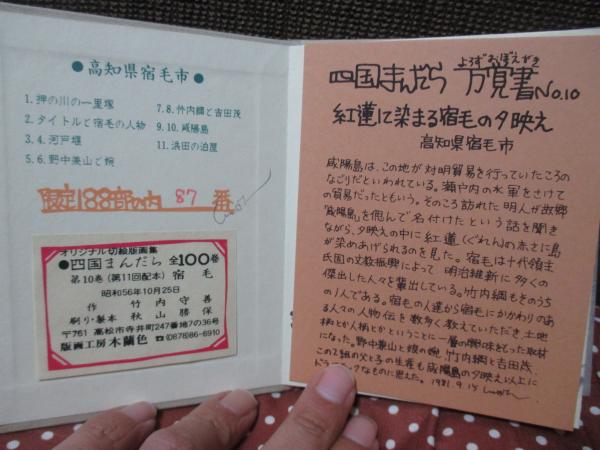 ●高知県宿毛市●
1.押の川の一里塚
2.タイトルと宿毛の人物
3.4.河戸堰
5.6.野中兼山と娩
7.8.竹内綱と吉田茂
9.10.咸陽島
11.浜田の泊屋
限定188部の内 87 番
オリジナル切絵版画集
●四国まんだら 全100巻
第10巻(第11回配本) 宿毛
昭和56年10月25日
作 竹内守善
刷り・製本 秋山勝保
〒761 高松市寺井町247番地7の36号
版画工房木蘭色 ☎(0878)86-6910
よろずおぼえがき
四国まんだら 万覚書 No.10
紅蓮に染まる宿毛の夕映え
高知県宿毛市
咸陽島は、この地が対明貿易を行っていたころの
なごりだといわれている。瀬戸内の水軍をさけて
の貿易だったともいう。そのころ訪れた明人が故郷
「咸陽島」を偲んで名付けたという話を聞き
ながら、夕映えの中に紅蓮(ぐれん)の赤さに島
が染めあげられるのを見た。宿毛は十代領主
氏固の文教振興によって明治維新に多くの
傑出した人々を輩出している。竹内綱もそのうち
の1人である。宿毛の人達から宿毛にかかわりのあ
る人々の人物伝を数多く教えていただき、土地
柄とか人柄とかということに一層の興味をもった取材
になった。野中兼山と娘の婉、竹内綱と吉田茂、
この2組の父と子の生産も咸陽島の夕映え以上に
ドラマチックなものに思えた。1981.9.15